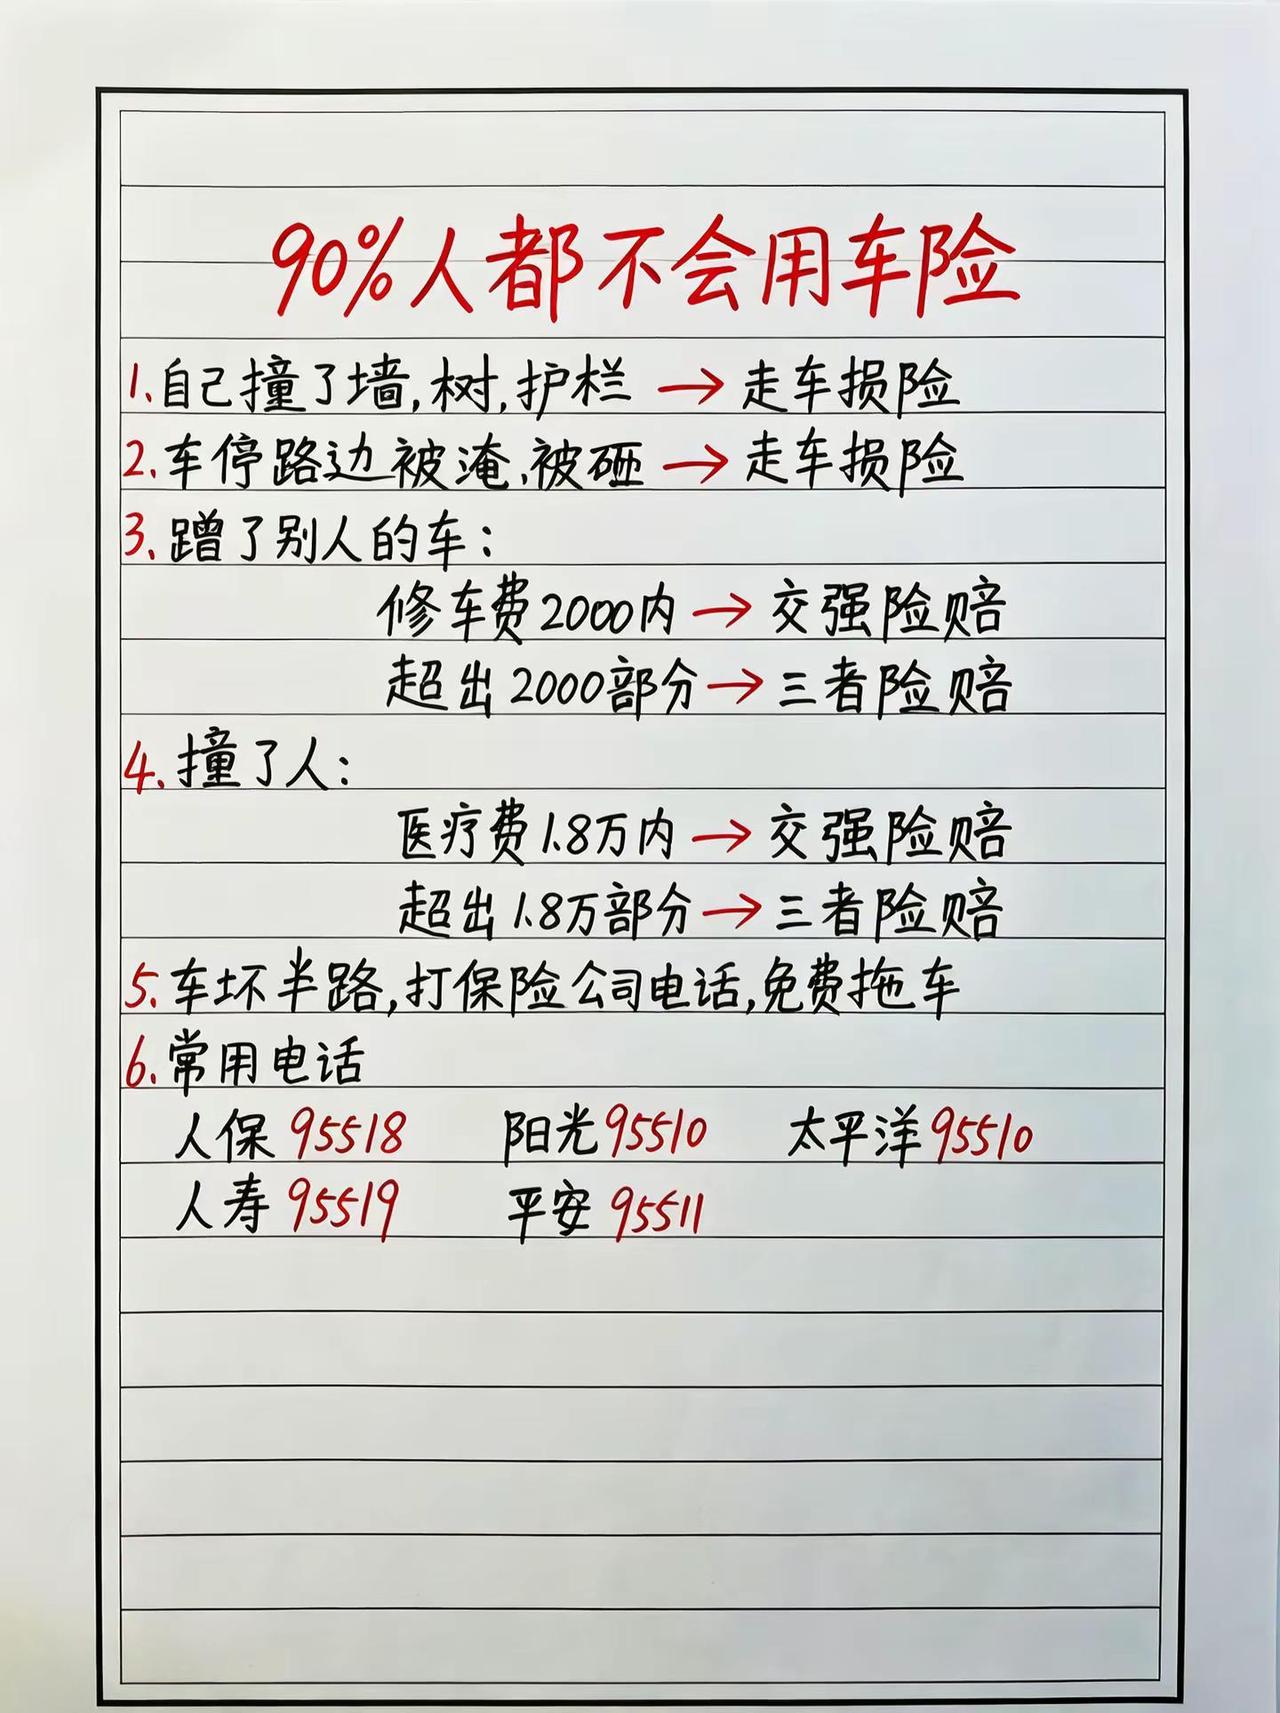 90%人都不会用车险
1.自己撞了墙,树,护栏 → 走车损险
2.车停路边被淹、被砸 → 走车损险
3.蹭了别人的车:
修车费2000内 → 交强险赔
超出2000部分 → 三者险赔
4.撞了人:
医疗费1.8万内 → 交强险赔
超出1.8万部分 → 三者险赔
5.车坏半路,打保险公司电话,免费拖车
6.常用电话
人保 95518 阳光95510 太平洋95510
人寿 95519 平安 95511